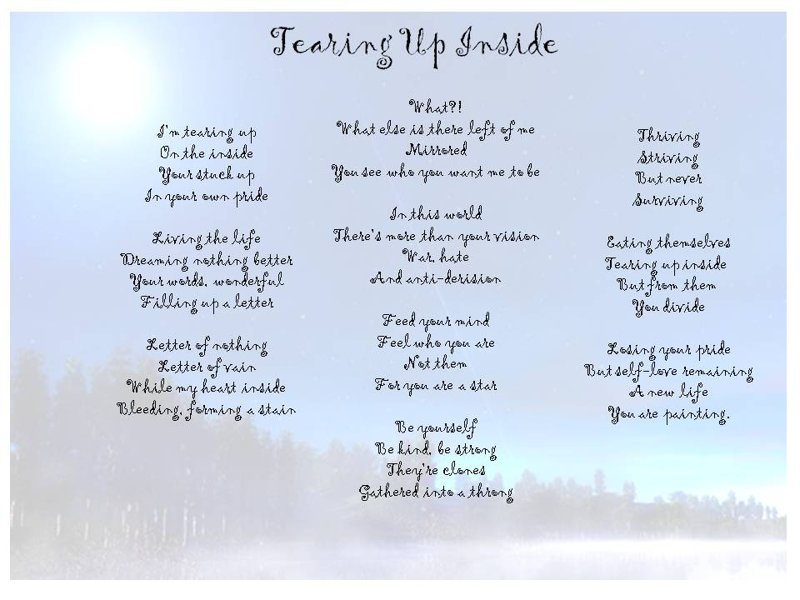 Tearing Up Inside
I'm tearing up
On the inside
Your stuck up
In your own pride
Living the life
Dreaming nothing better
Your words, wonderful
Filling up a letter
Letter of nothing
Letter of vain
While my heart inside
Bleeding, forming a stain
What?!
What else is there left of me
Mirrored
You see who you want me to be
In this world
There's more than your vision
War, hate
And anti-derision
Feed your mind
Feel who you are
Not them
For you are a star
Be yourself
Be kind, be strong
They're clones
Gathered into a throng
Thriving
Striving
But never
Surviving
Eating themselves
Tearing up inside
But from them
You divide
Losing your pride
But self-love remaining
A new life
You are painting.